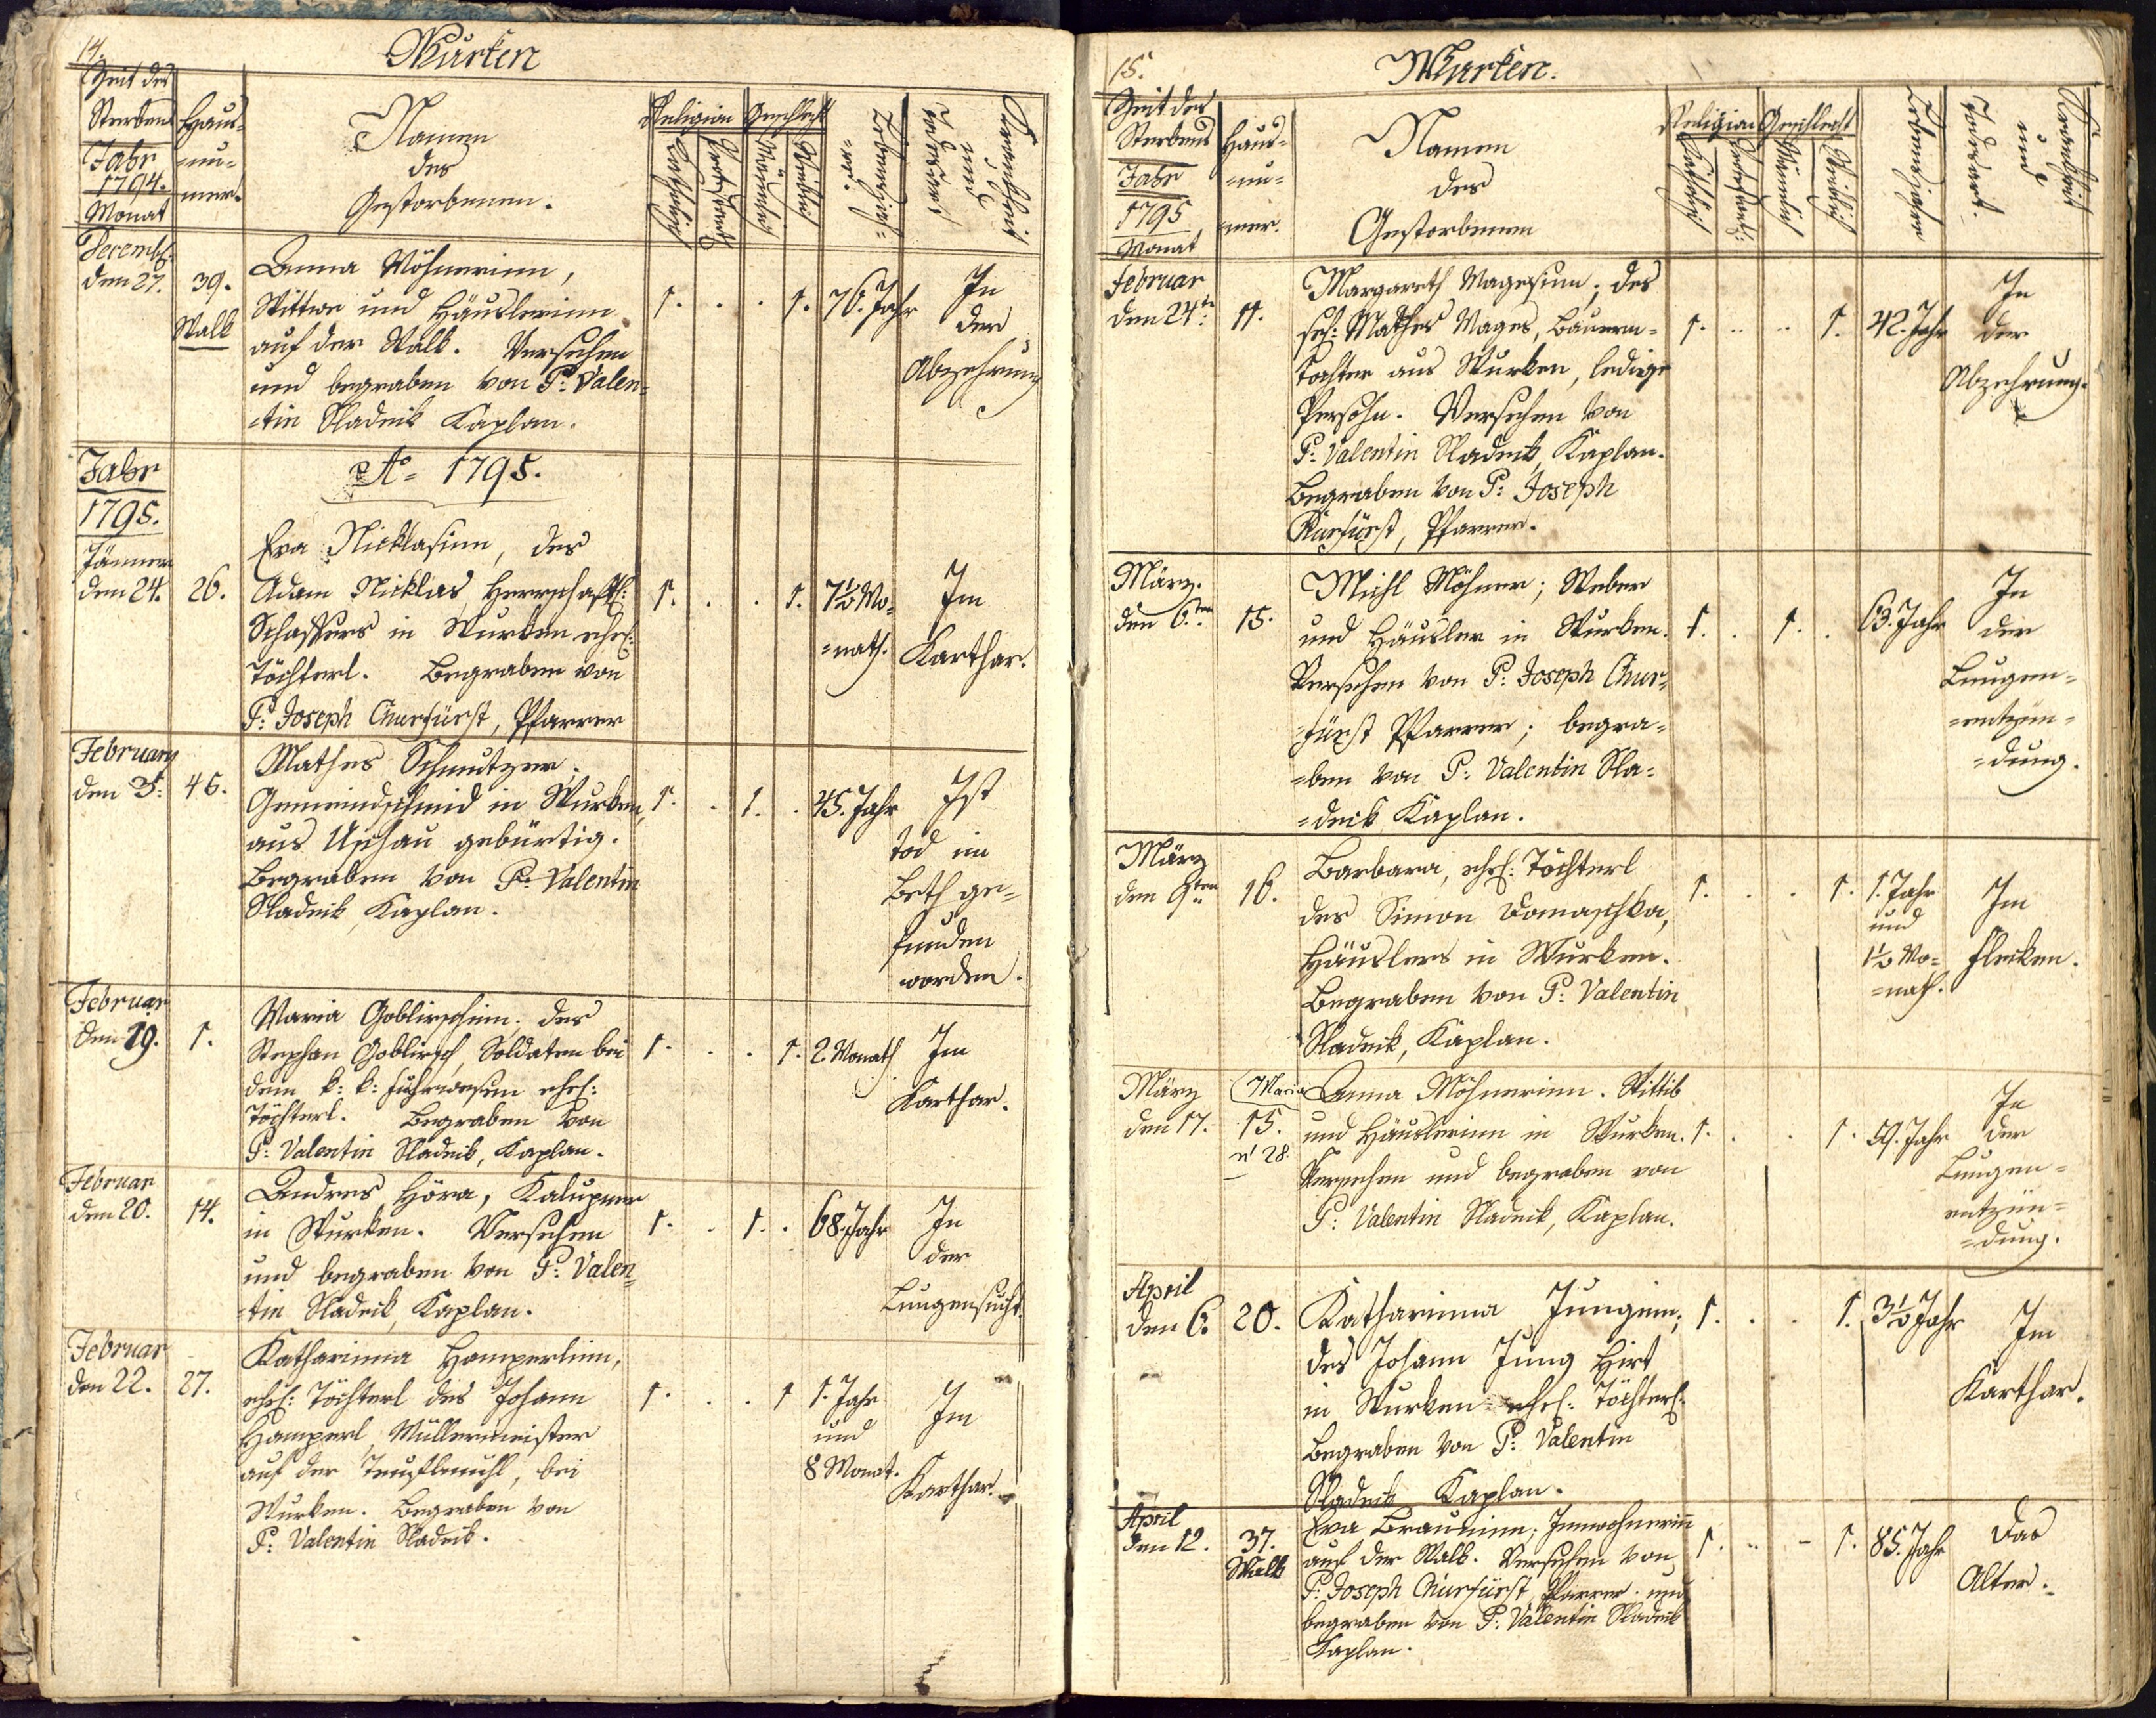 14.
Wurken
Zeit des
Sterbens
Jahr
1794.
Monat
Haus=
=nu=
mer.
Namen
des
Gestorbenen.
Religion
Katholisch
Protestant
Geschlecht
Männlich
Weiblich
Lebensjah=
=re.
Krankheit
und
Todesart
Decemb:
den 27.
39.
Walk
Anna Möhnerinn,
Wittwe und Häuslerinn
auf der Walk. Versehen
und begraben von P: Valen=
=tin Sladeik Kaplan.
1. . . 1.
76. Jahr
In
der
Abzehrung
Jahr
1795.
Ao= 1795.
Jänner
den 24.
26.
Eva Nicklasinn, des
Adam Nicklas Herrschaftl:
Schaffers in Wurken ehel:
Töchterl. Begraben von
P: Joseph Churfürst, Pfarrer
1. . . 1.
7½ Mo=
=nath.
Im
Karthar.
February
den 3:
46.
Mathes Schmutzer.
Gemeindschmid in Wurken,
aus Uschau gebürtig.
Begraben von P: Valentin
Sladeik, Kaplan.
1. . 1. .
45. Jahr
Ist
tod im
Beth ge=
funden
worden.
Februar
den 19.
1.
Maria Goblirschinn. des
Stephan Goblirsch, Soldaten bei
dem k: k: Fuhrwesen ehel:
Töchterl. Begraben von
P: Valentin Sladeik, Kaplan.
1. . . 1.
2. Monath
Im
Karthar.
Februar
den 20.
14.
Andres Höra, Kalupner
in Wurken. Versehen
und begraben von P: Valen=
=tin Sladeik, Kaplan.
1. . 1. .
68. Jahr
In
der
Lungensucht.
Februar
den 22.
27.
Katharinna Hamperlinn,
ehel: Töchterl des Johann
Hamperl Müllermeister
auf der Teuflmühl, bei
Wurken. Begraben von
P: Valentin Sladeik.
1. . . 1
1. Jahr
und
8 Monat.
Im
Karthar.
15.
Wurken.
Zeit des
Sterbens
Jahr
1795
Monat
Haus=
=nu=
mer.
Namen
des
Gestorbenen
Religion
Katholisch
Protestant:
Geschlecht
Männlich
Weiblich
Lebensjahre
Krankheit
und
Todesart.
Februar
den 24te:
11.
Margareth Magesinn; des
sel: Mathes Mages, Bauern=
Tochter aus Wurken, ledige
Persohn. Versehen von
P: Valentin Sladeik, Kaplan.
Begraben von P: Joseph
Kurfürst, Pfarrer.
1. .. .. 1.
42. Jahr
In
der
Abzehrung.
März.
den 6.ten
15.
Michl Möhner; Weber
und Häusler in Wurken.
Versehen von P: Joseph Chur=
=fürst Pfarrer; begra=
=ben von P: Valentin Sla=
=deik Kaplan.
1. . 1. .
63. Jahr
In
der
Lungen=
=entzün=
=dung.
März
den 9ten
16.
Barbara, ehel: Töchterl
des Simon Domaschka,
Häuslers in Wurken.
Begraben von P: Valentin
Sladeik, Kaplan.
1. . . 1.
1. Jahr
und
1½ Mo=
=nath.
Im
Flecken.
März
den 17.
15.
n' 28.
Maria Anna Möhnerinn. Wittib
und Häuslerinn in Wurken.
Versehen und begraben von
P: Valentin Sladeik, Kaplan.
1. . . 1.
59. Jahr
In
der
Lungen=
entzün=
=dung.
April
den 6.
20.
Katharinna Junginn;
des Johann Jung Hirt
in Wurken ehel: Töchterl:
Begraben von P: Valentin
Sladeik Kaplan.
1. . . 1.
3½ Jahr
Im
Karthar.
April
den 12.
37.
Walk
Eva Brauninn; Innwohnerinn
auf der Walk. Versehen von
P: Joseph Churfürst, Pfarrer. und
begraben von P: Valentin Sladeik
Kaplan.
1. .. - 1.
85. Jahr
Das
Alter.